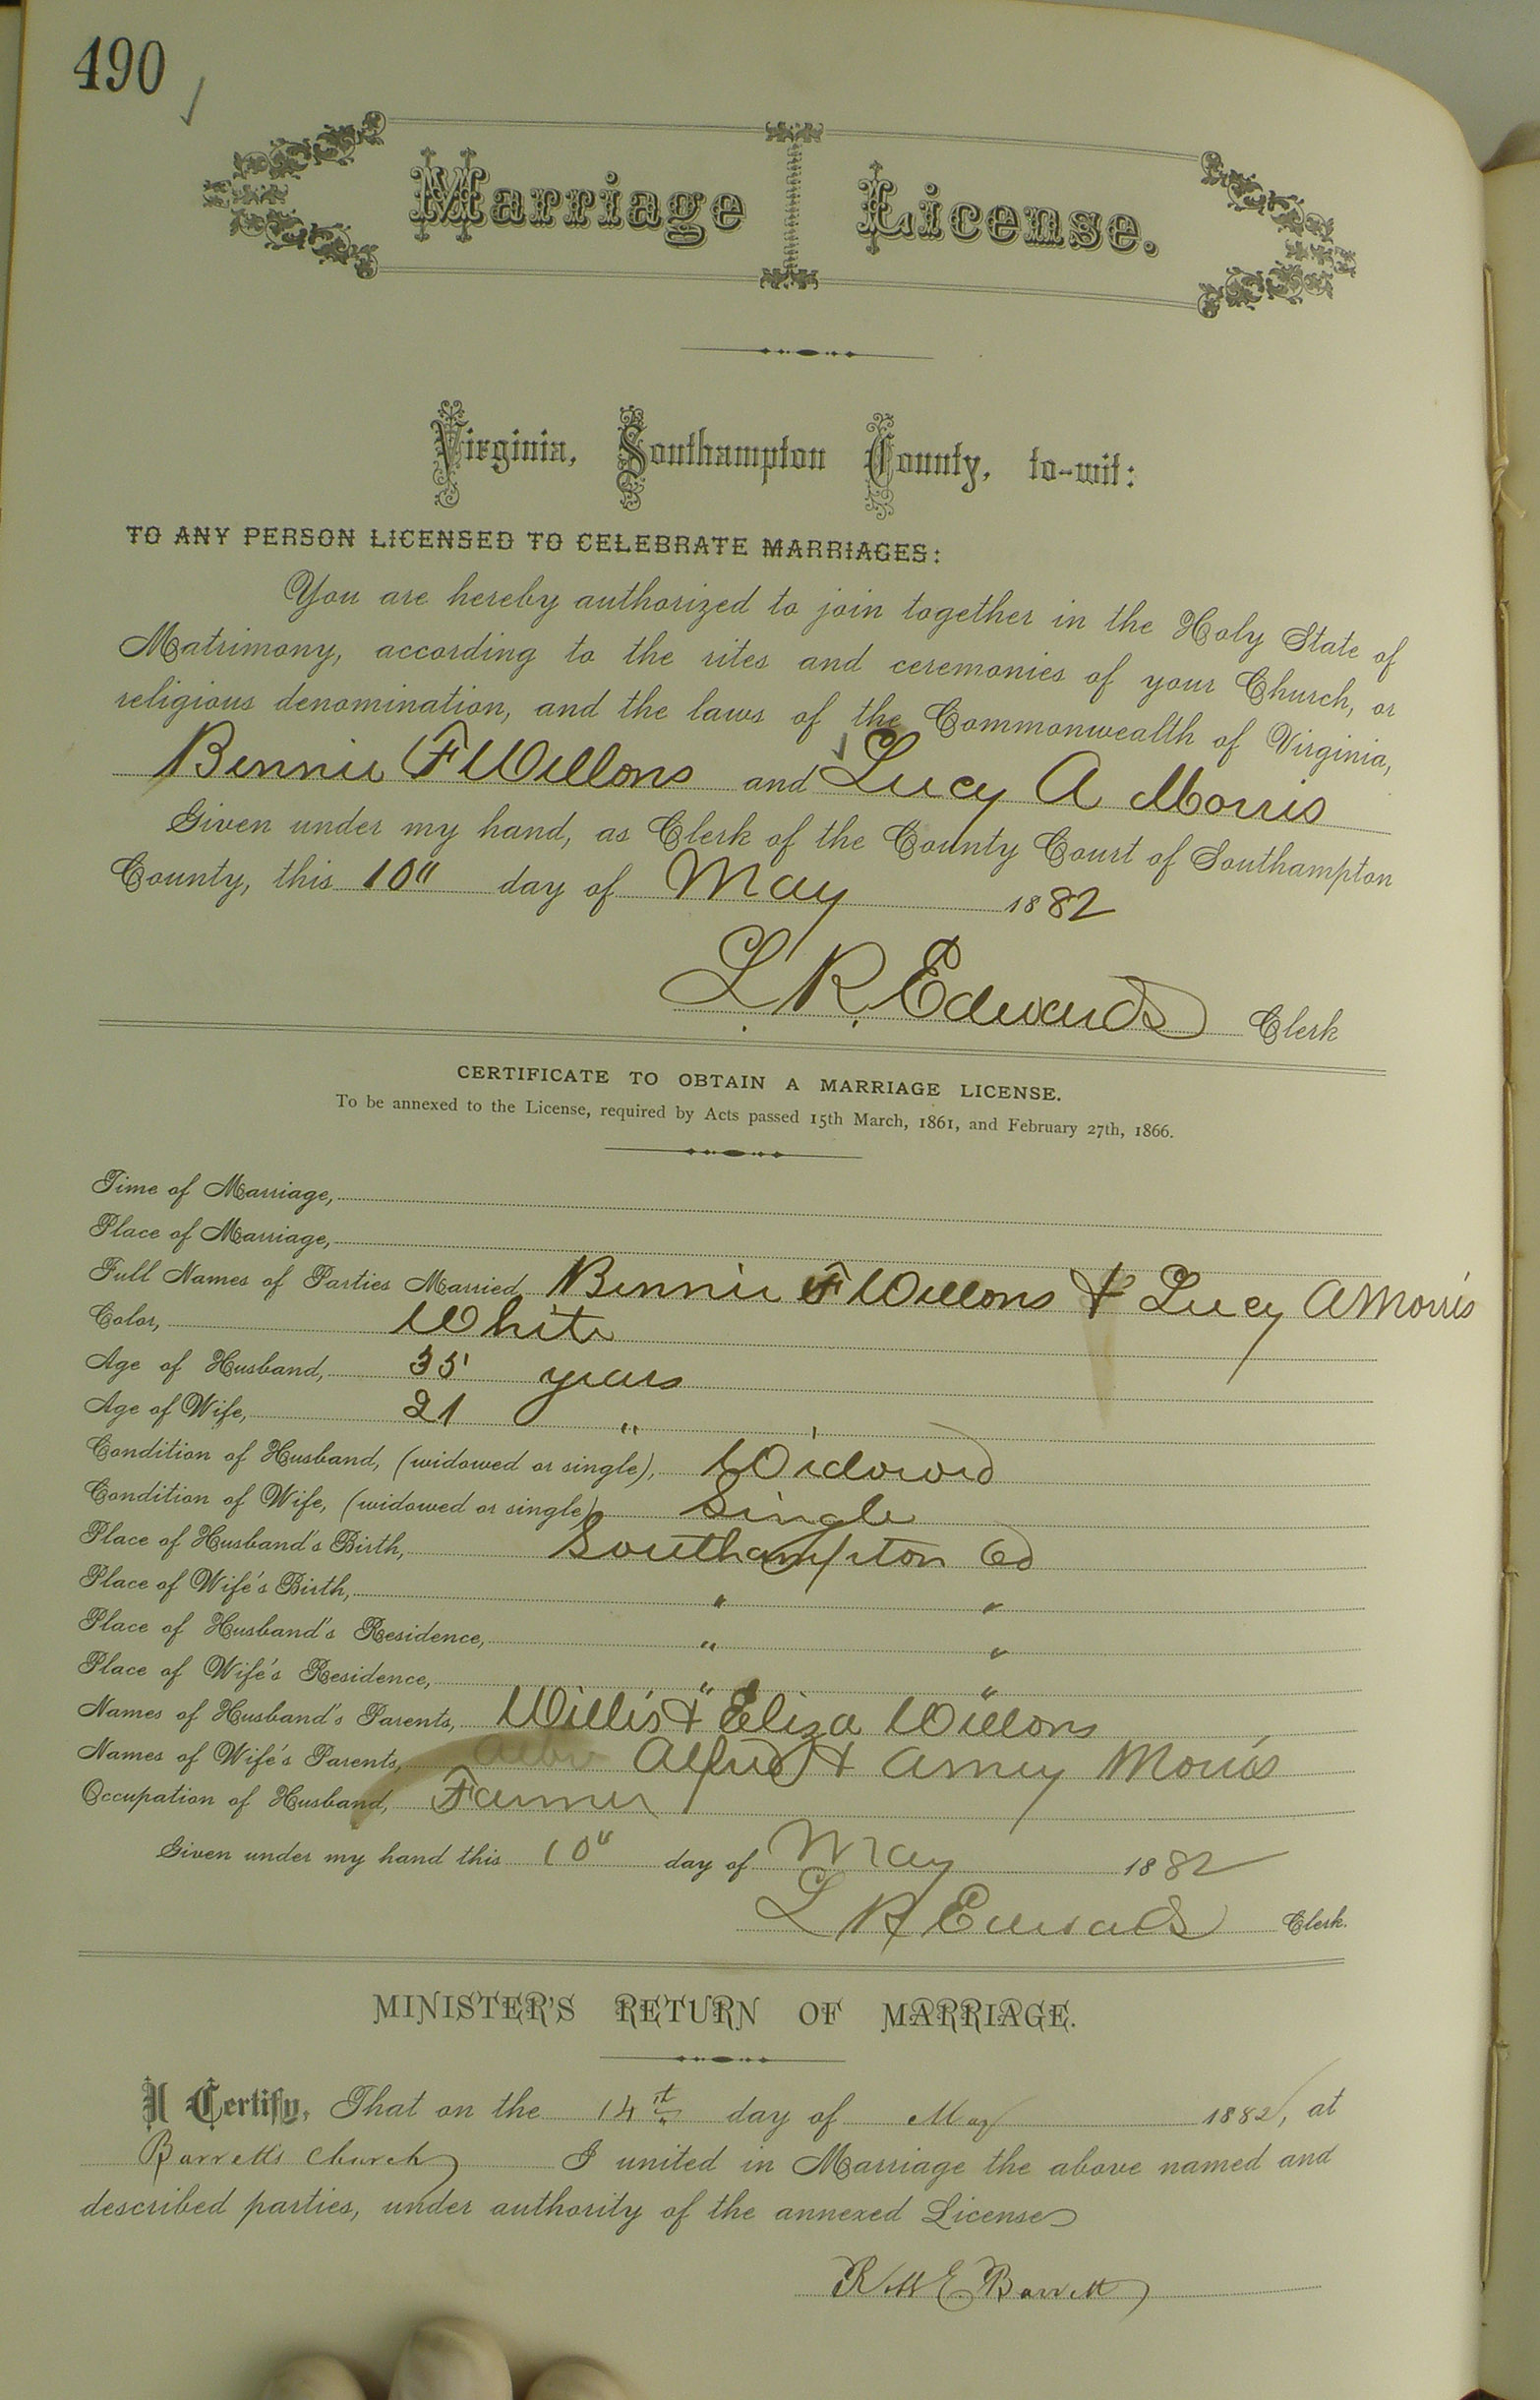 490
Marriage License.
Virginia, Southampton County, to-wit:
TO ANY PERSON LICENSED TO CELEBRATE MARRIAGES:
You are hereby authorized to join together in the Holy State of
Matrimony, according to the rites and ceremonies of your Church, or
religious denomination, and the laws of the Commonwealth of Virginia,
Bennie F Willons and Lucy A Morris
Given under my hand, as Clerk of the County Court of Southampton
County, this 10" day of May 1882
L. R. Edwards Clerk
CERTIFICATE TO OBTAIN A MARRIAGE LICENSE.
To be annexed to the License, required by Acts passed 15th March, 1861, and February 27th, 1866.
Time of Marriage,
Place of Marriage,
Full Names of Parties Married, Bennie F Willons & Lucy A Morris
Color, White
Age of Husband, 35 years
Age of Wife, 21 "
Condition of Husband, (widowed or single), Widowed
Condition of Wife, (widowed or single), Single
Place of Husband's Birth, Southampton Co
Place of Wife's Birth, " "
Place of Husband's Residence, " "
Place of Wife's Residence, " "
Names of Husband's Parents, Willis & Eliza Willons
Names of Wife's Parents, Alfred & Amey Morris
Occupation of Husband, Farmer
Given under my hand this 10" day of May 1882
L R Edwards Clerk.
MINISTER'S RETURN OF MARRIAGE.
I Certify, That on the 14th day of May 1882, at
Barrett's Church I united in Marriage the above named and
described parties, under authority of the annexed License
E. Barrett